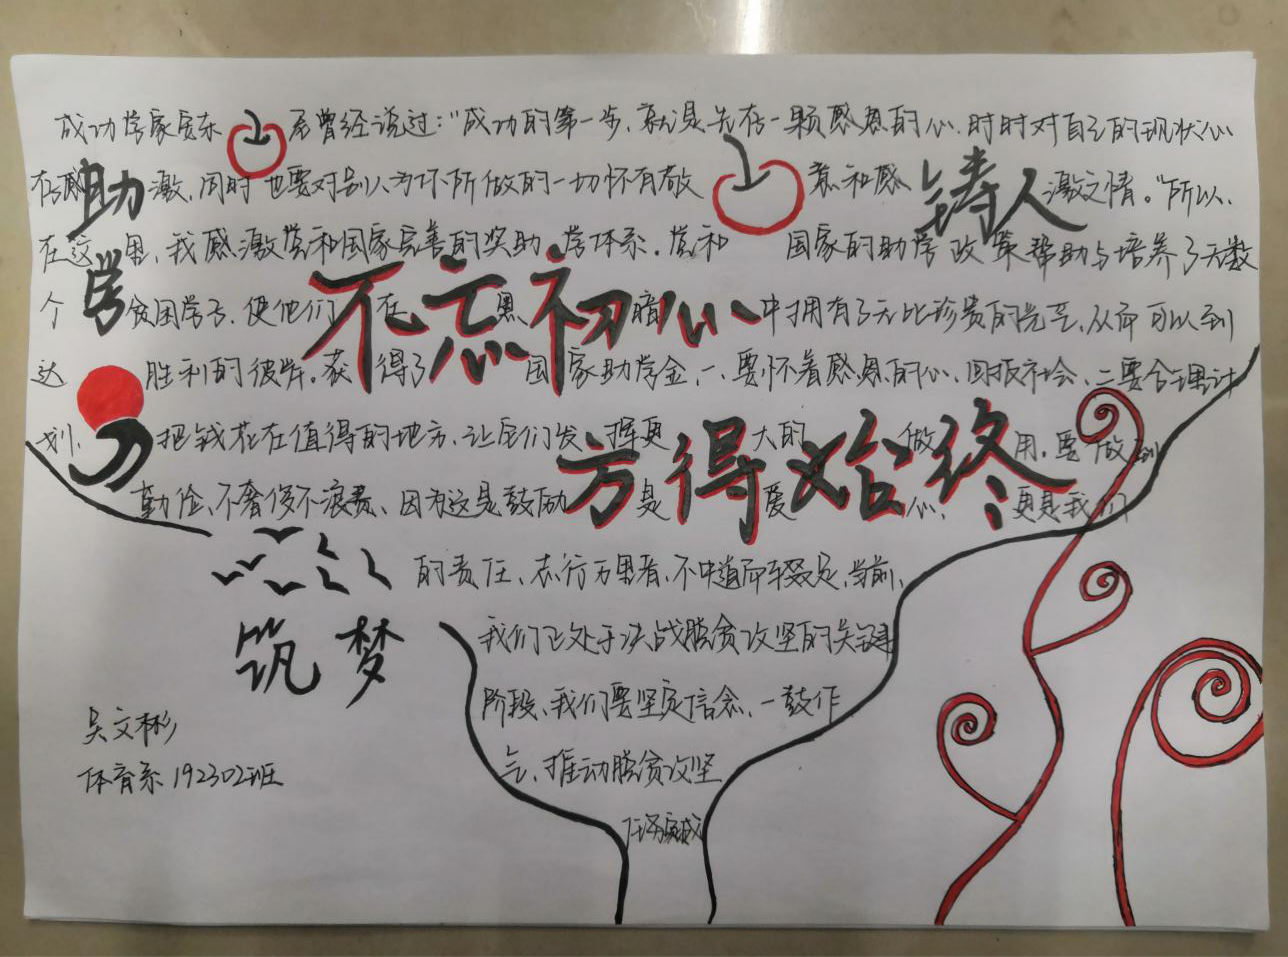 成功学家安东尼曾经说过：“成功的第一步，就是先存一颗感恩的心，时时对自己的现状心
存感激，同时也要对别人为你所做的一切怀有敬意和感激之情。”所以，
在这里，我感激党和国家完善的奖助学体系。党和国家的助学政策帮助与培养了无数
个贫困学子，使他们在黑暗中拥有了无比珍贵的光芒，从而可以到
达胜利的彼岸。获得了国家助学金，一要怀着感恩的心，回报社会，二要合理计
划，把钱花在值得的地方，让它们发挥更大的做用，要做到
勤俭、不奢侈不浪费、因为这是鼓励是爱心，更是我们
的责任、志行万里者，不中道而辍足，当前，
我们正处于决战脱贫攻坚的关键
阶段、我们要坚定信念、一鼓作
气、推动脱贫攻坚
任务完成
助学
铸人
不忘初心
方得始终
筑梦
吴文彬
体育系192302班